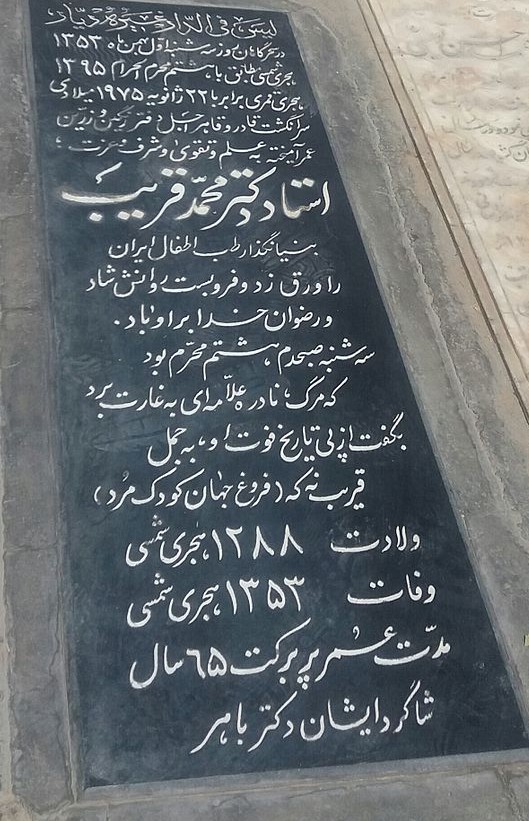 لیس فی الدار غیره دیار
در سحرگاهان روز سه شنبه اول بهمن ماه ۱۳۵۳
هجری شمسی مطابق با هشتم محرم الحرام ۱۳۹۵
هجری قمری برابر با ۲۲ ژانویه ۱۹۷۵ میلادی
سرانگشت قادر و قاهر اجل دفتر زرین
عمر آمیخته به علم و تقوی و شرف و عزت ؛
استاد دکتر محمّد قریب
بنیانگذار طب اطفال ایران
را ورق زد و فروبست روانش شاد
و رضوان خدا بر او باد.
سه شنبه صبحدم هشتم محرّم بود
که مرگ، نادره علاّمه‌ای به غارت برد
بگفت از پی تاریخ فوت او، به جمل
قریب نه که (فروغ جهان کودک مُرد)
ولادت ۱۲۸۸ هجری شمسی
وفات ۱۳۵۳ هجری شمسی
مدّت عمر پر برکت ۶۵ سال
شاگرد ایشان دکتر باهر